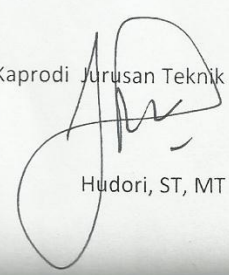 Kaprodi Jurusan Teknik
Hudori, ST, MT